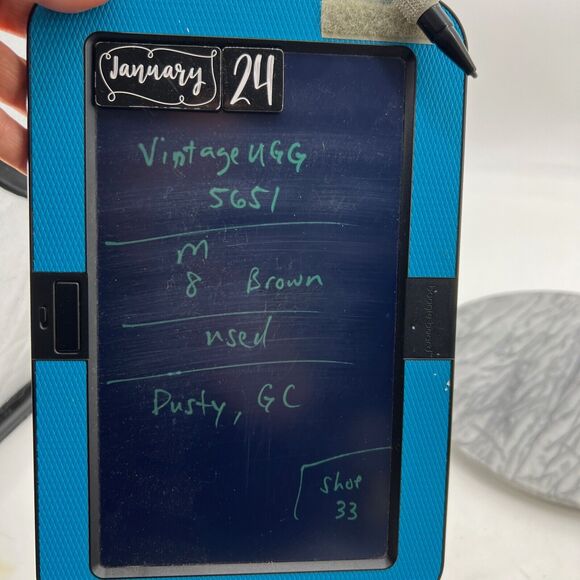 January 24
Vintage UGG
5651
M
8 Brown
used
Dusty, GC
shoe
33
boogie board